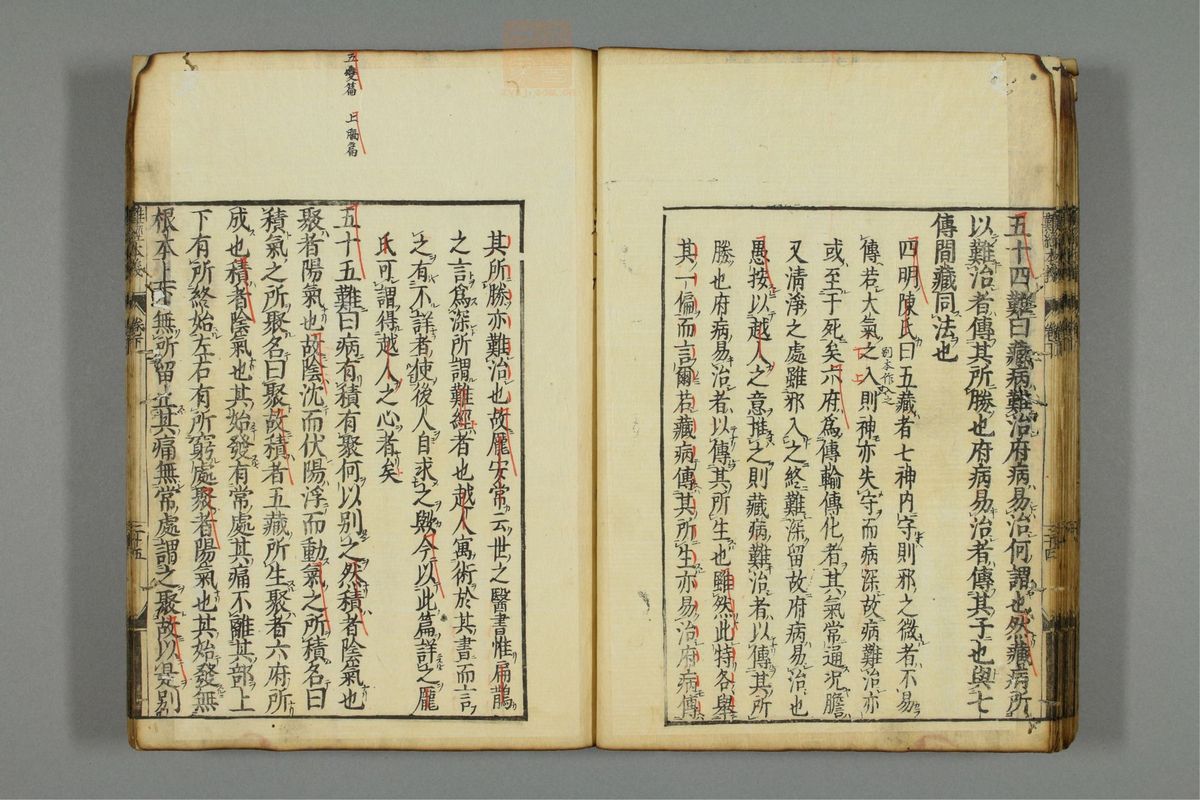 五十四難曰藏病難治府病易治何謂也然藏病所
以難治者傳其所勝也府病易治者傳其子也與七
傳間藏同法也
四明陳氏曰五藏者七神內守則邪之微者不易
傳若大氣之入則神亦失守而病深故病難治亦
或至于死矣六府爲傳輸傳化者其氣常通況膽
又清淨之處雖邪入之終難深留故府病易治也
愚按以越人之意推之則藏病難治者以傳其所
勝也府病易治者以傳其所生也雖然此特各舉
其一偏而言爾若藏病傳其所生亦易治府病傳
五變篇 上膈篇
其所勝亦難治也故龐安常云世之醫書惟扁鵲
之言爲深所謂難經者也越人寓術於其書而言
之有不詳者使後人自求之歟今以此篇詳之龐
氏可謂得越人之心者矣
五十五難曰病有積有聚何以別之然積者陰氣也
聚者陽氣也故陰沈而伏陽浮而動氣之所積名曰
積氣之所聚名曰聚故積者五藏所生聚者六府所
成也積者陰氣也其始發有常處其痛不離其部上
下有所終始左右有所窮處聚者陽氣也其始發無
根本上下無所留止其痛無常處謂之聚故以是別